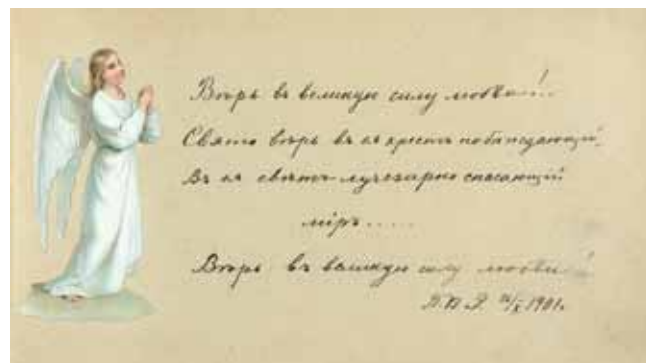 Вѣрь въ великую силу любви!..
Свято вѣрь въ ея крестъ побѣждающій,
Въ ея свѣтъ лучезарно спасающій
міръ.....
Вѣрь въ великую силу любви!
1901.